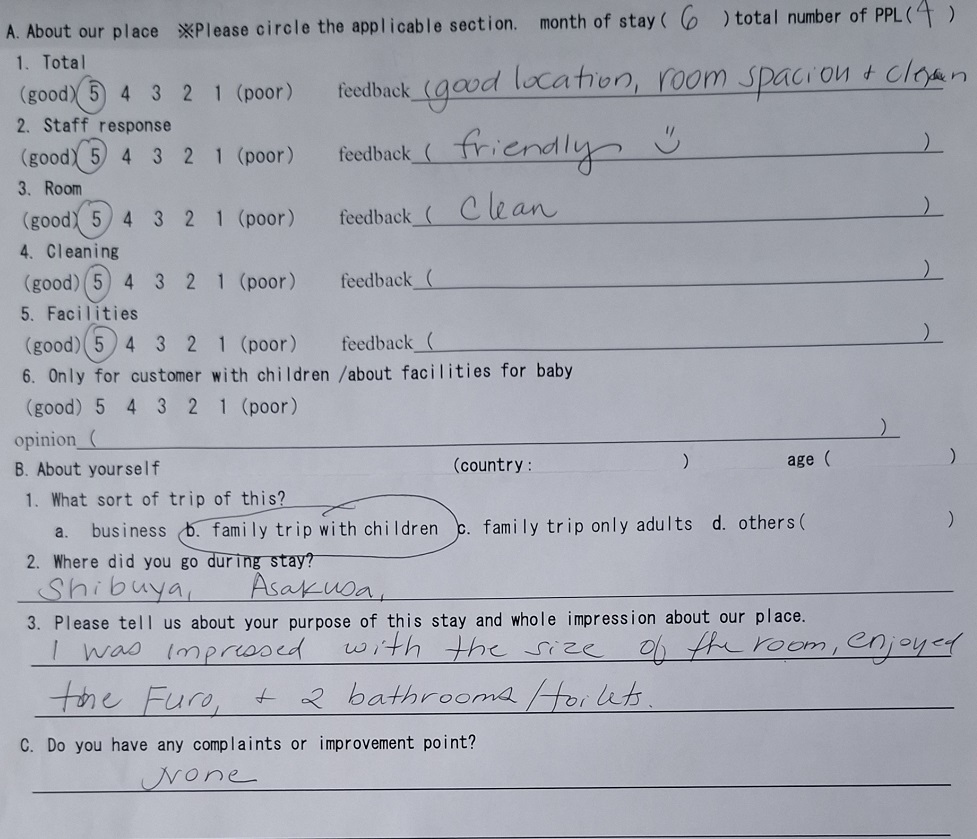 A. About our place ※Please circle the applicable section. month of stay ( 6 ) total number of PPL( 4 )
1. Total
(good) 5 4 3 2 1 (poor) feedback (good location, room spaciou + clean
2. Staff response
(good) 5 4 3 2 1 (poor) feedback ( friendly )
3. Room
(good) 5 4 3 2 1 (poor) feedback ( Clean )
4. Cleaning
(good) 5 4 3 2 1 (poor) feedback ( )
5. Facilities
(good) 5 4 3 2 1 (poor) feedback ( )
6. Only for customer with children /about facilities for baby
(good) 5 4 3 2 1 (poor)
opinion ( )
B. About yourself (country: ) age ( )
1. What sort of trip of this?
a. business b. family trip with children c. family trip only adults d. others( )
2. Where did you go during stay?
Shibuya, Asakusa,
3. Please tell us about your purpose of this stay and whole impression about our place.
I was impressed with the size of the room, enjoyed
the Furo, + 2 bathrooms/toilets.
C. Do you have any complaints or improvement point?
None